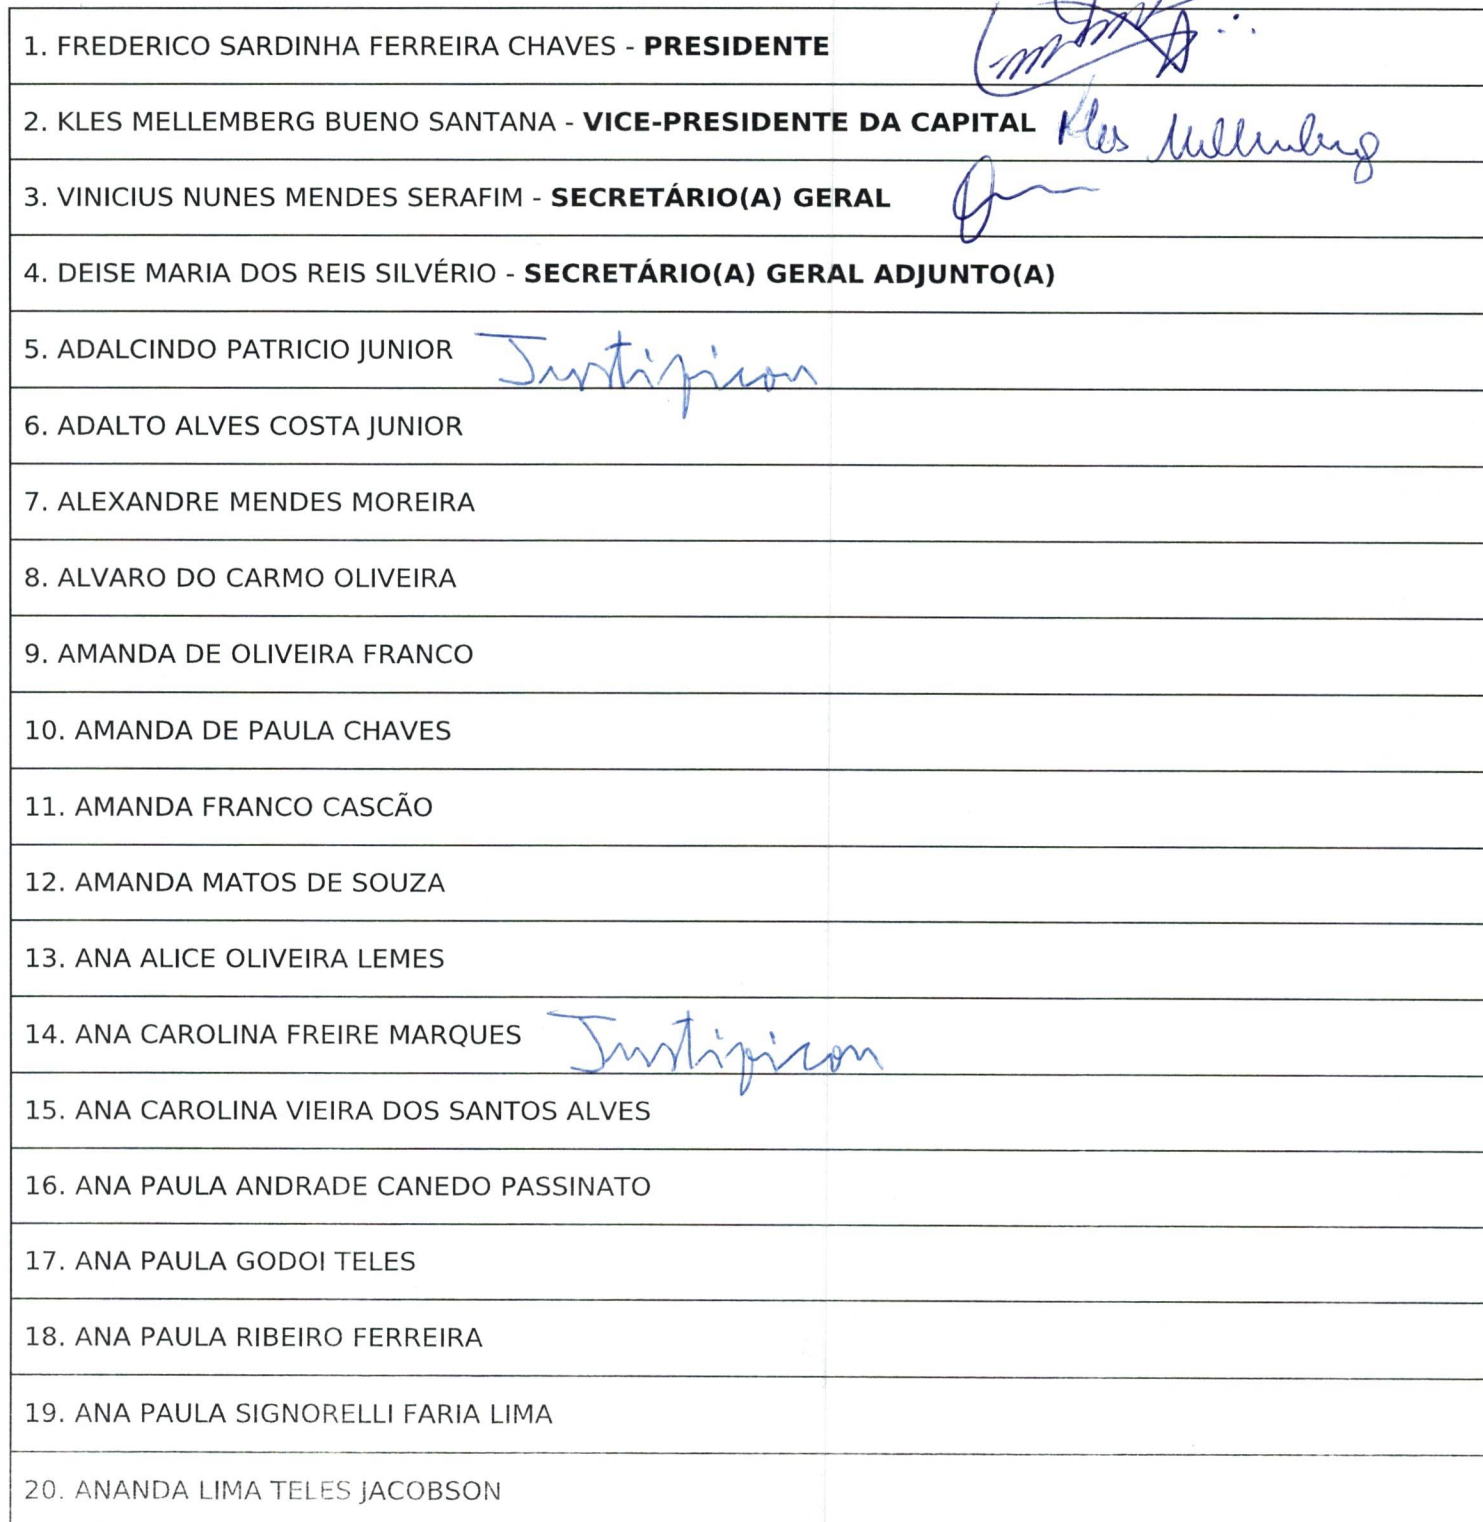 1. FREDERICO SARDINHA FERREIRA CHAVES - PRESIDENTE
2. KLES MELLEMBERG BUENO SANTANA - VICE-PRESIDENTE DA CAPITAL Kles Mellemberg
3. VINICIUS NUNES MENDES SERAFIM - SECRETÁRIO(A) GERAL
4. DEISE MARIA DOS REIS SILVÉRIO - SECRETÁRIO(A) GERAL ADJUNTO(A)
5. ADALCINDO PATRICIO JUNIOR Justificou
6. ADALTO ALVES COSTA JUNIOR
7. ALEXANDRE MENDES MOREIRA
8. ALVARO DO CARMO OLIVEIRA
9. AMANDA DE OLIVEIRA FRANCO
10. AMANDA DE PAULA CHAVES
11. AMANDA FRANCO CASCÃO
12. AMANDA MATOS DE SOUZA
13. ANA ALICE OLIVEIRA LEMES
14. ANA CAROLINA FREIRE MARQUES Justificou
15. ANA CAROLINA VIEIRA DOS SANTOS ALVES
16. ANA PAULA ANDRADE CANEDO PASSINATO
17. ANA PAULA GODOI TELES
18. ANA PAULA RIBEIRO FERREIRA
19. ANA PAULA SIGNORELLI FARIA LIMA
20. ANANDA LIMA TELES JACOBSON